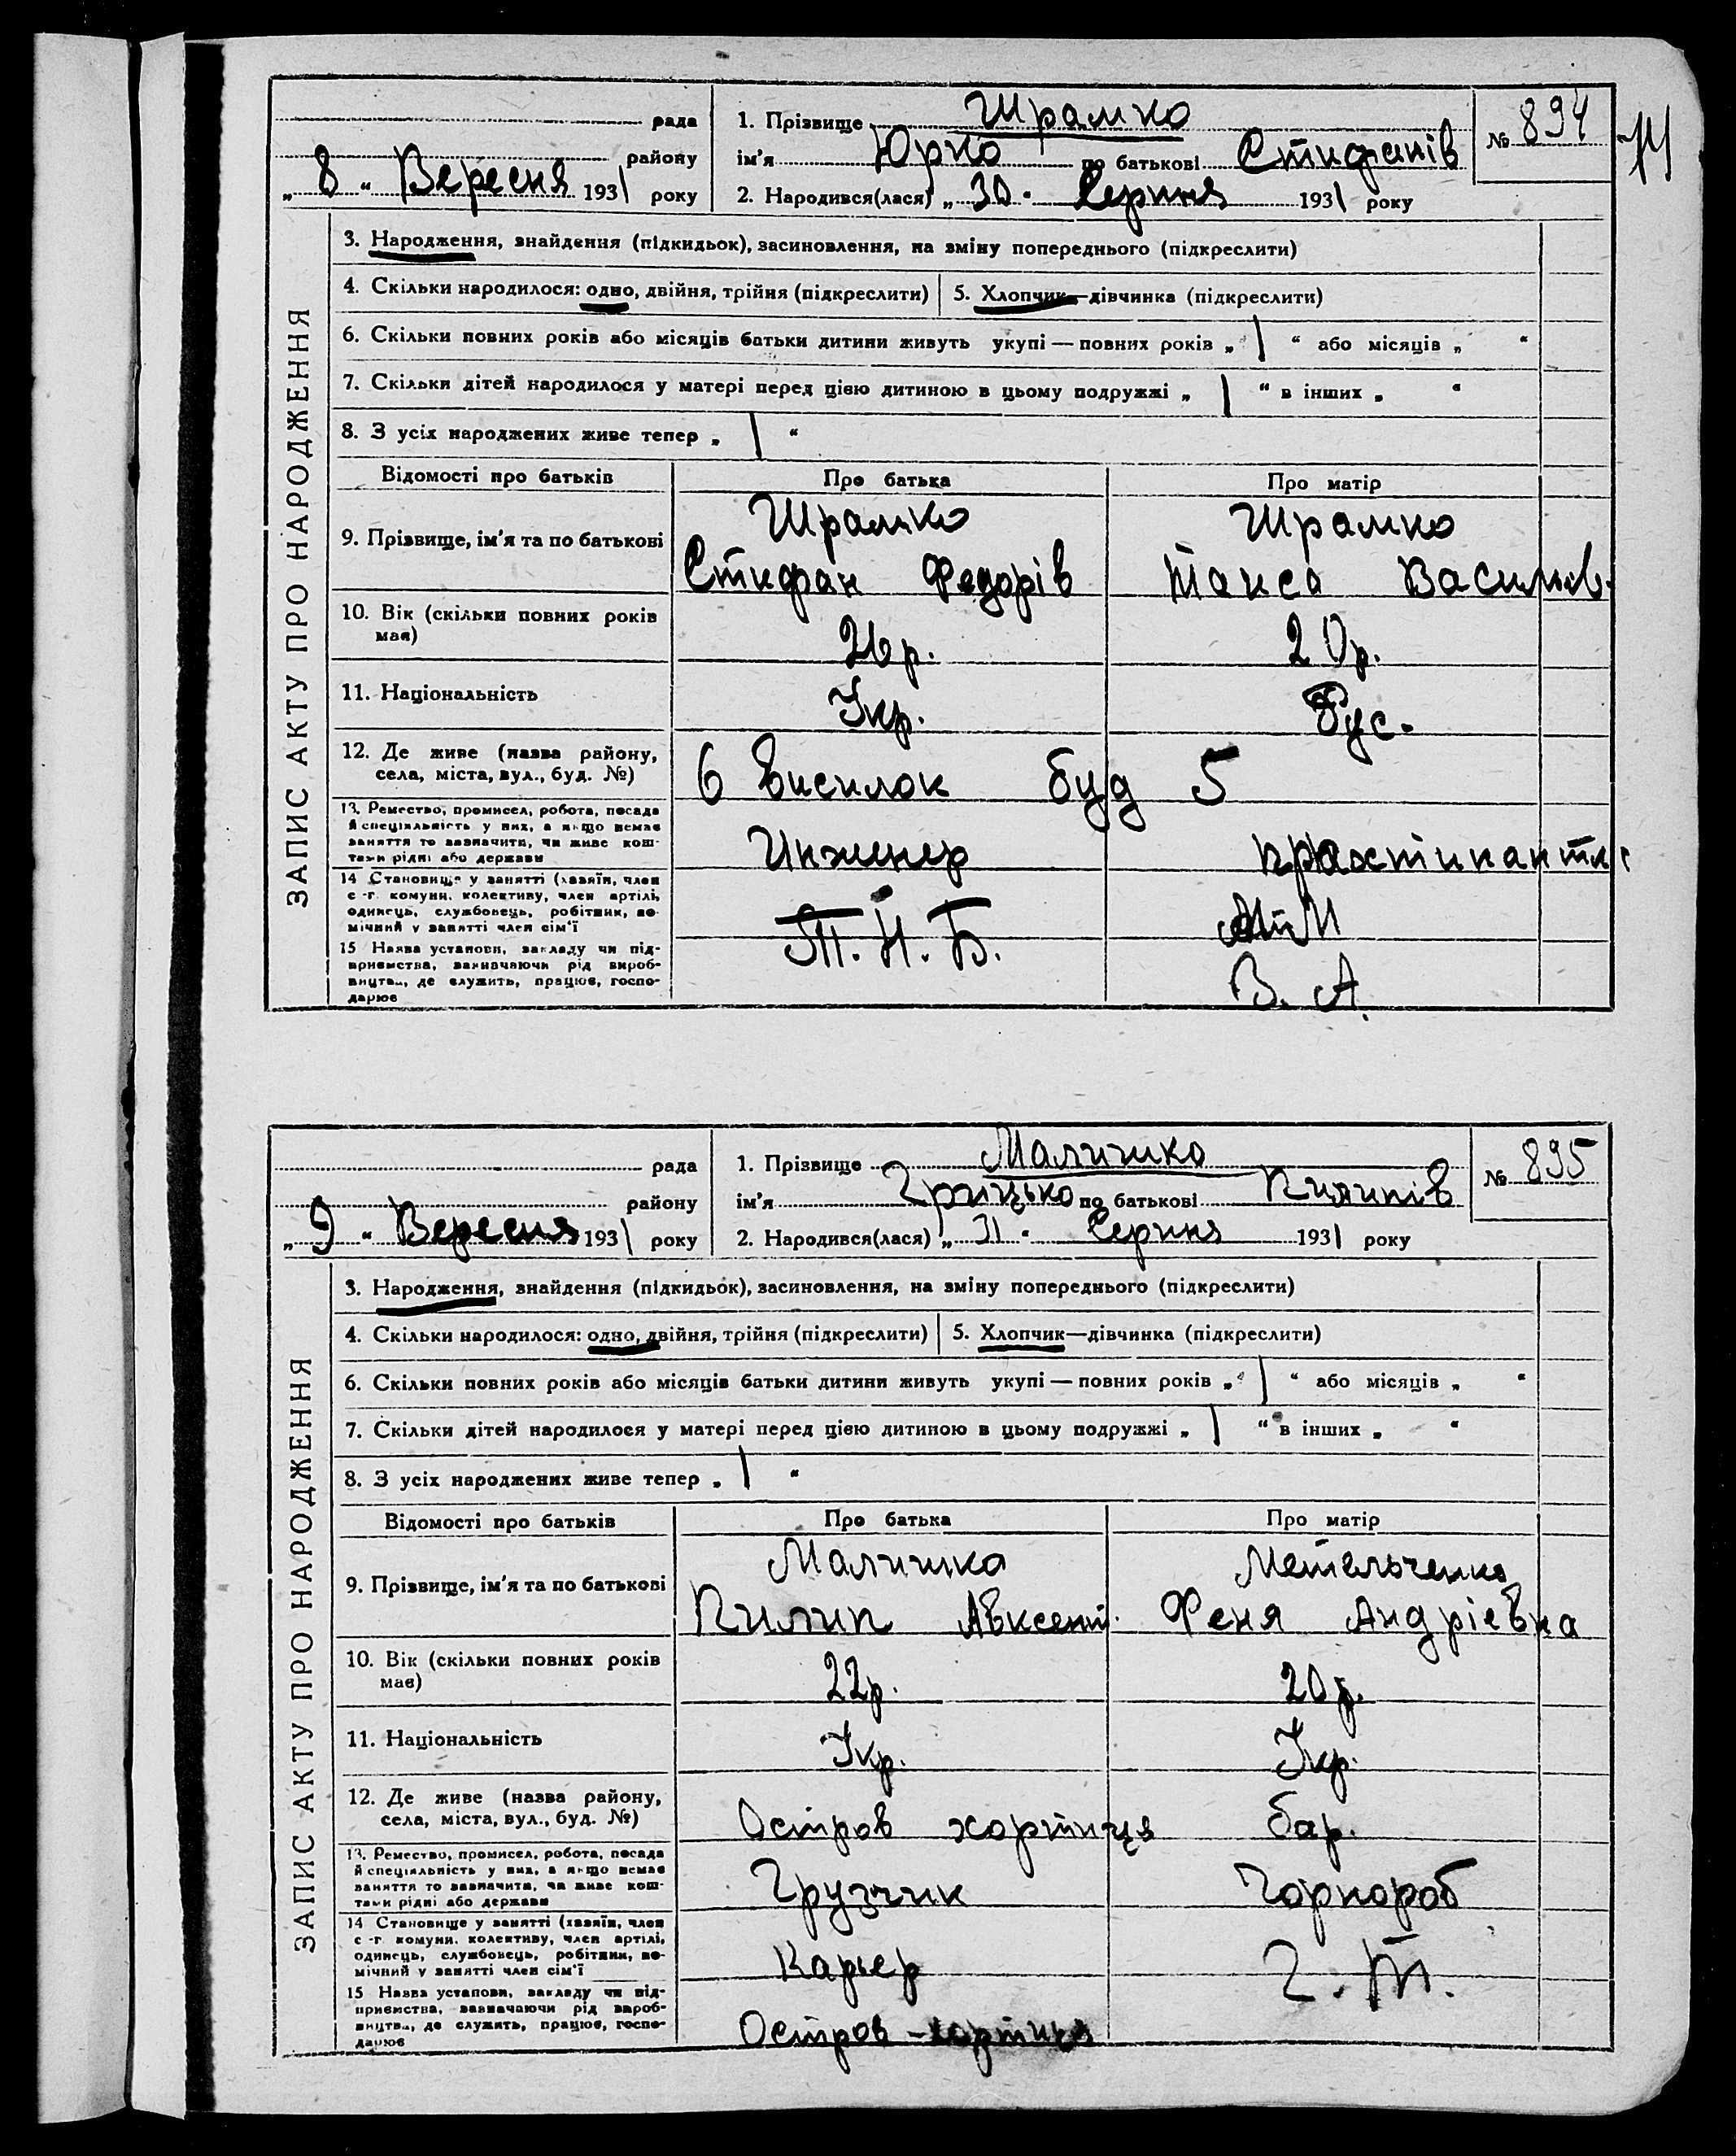 рада
району
„ 8 “ Вересня 1931 року
1. Прізвище Шрамко
ім'я Юрко по батькові Стифанів
2. Народився(лася) „ 30 “ Серпня 1931 року
№ 894
ЗАПИС АКТУ ПРО НАРОДЖЕННЯ
3. Народження, знайдення (підкидьок), засиновлення, на зміну попереднього (підкреслити)
4. Скільки народилося: одно, двійня, трійня (підкреслити) 5. Хлопчик—дівчинка (підкреслити)
6. Скільки повних років або місяців батьки дитини живуть укупі — повних років „ 1 “ або місяців „ “
7. Скільки дітей народилося у матері перед цією дитиною в цьому подружжі „ 1 “ в інших „ “
8. З усіх народжених живе тепер „ 1 “
Відомості про батьків Про батька Про матір
9. Прізвище, ім'я та по батькові
Шрамко Шрамко
Стифан Федорів Василів.
10. Вік (скільки повних років має)
26 р. 20 р.
11. Національність Укр. Рус.
12. Де живе (назва району, села, міста, вул., буд. №)
6 Висилок буд 5
13. Ремество, промисел, робота, посада
й спеціяльність у них, а якщо немає
заняття то зазначити, чи живе кош-
тами рідні або держави
Инженер практикантка
14 Становище у занятті (хазяїн, член
с.-г. комуни, колективу, член артілі,
одинець, службовець, робітник, по-
мічний у занятті член сім'ї
15 Назва установи, закладу чи під-
приємства, зазначаючи рід вироб-
ництва, де служить, працює, госпо-
дарює
Т.Н.Б.
В. А.
рада
району
„ 9 “ Вересня 1931 року
1. Прізвище Малишко
ім'я Грицько по батькові Пилипів
2. Народився(лася) „ 31 “ Серпня 1931 року
№ 895
ЗАПИС АКТУ ПРО НАРОДЖЕННЯ
3. Народження, знайдення (підкидьок), засиновлення, на зміну попереднього (підкреслити)
4. Скільки народилося: одно, двійня, трійня (підкреслити) 5. Хлопчик—дівчинка (підкреслити)
6. Скільки повних років або місяців батьки дитини живуть укупі — повних років „ 1 “ або місяців „ “
7. Скільки дітей народилося у матері перед цією дитиною в цьому подружжі „ 1 “ в інших „ “
8. З усіх народжених живе тепер „ 1 “
Відомості про батьків Про батька Про матір
9. Прізвище, ім'я та по батькові
Малишка Метельченко
Пилип Авксент. Феня Андріевна
10. Вік (скільки повних років має)
22р. 20р.
11. Національність Укр. Укр.
12. Де живе (назва району, села, міста, вул., буд. №)
Остров хортиця бар.
13. Ремество, промисел, робота, посада
й спеціяльність у них, а якщо немає
заняття то зазначити, чи живе кош-
тами рідні або держави
Грузчик Чорнороб
14 Становище у занятті (хазяїн, член
с.-г. комуни, колективу, член артілі,
одинець, службовець, робітник, по-
мічний у занятті член сім'ї
Карьер Г. Т.
15 Назва установи, закладу чи під-
приємства, зазначаючи рід вироб-
ництва, де служить, працює, госпо-
дарює
Остров-хортиця